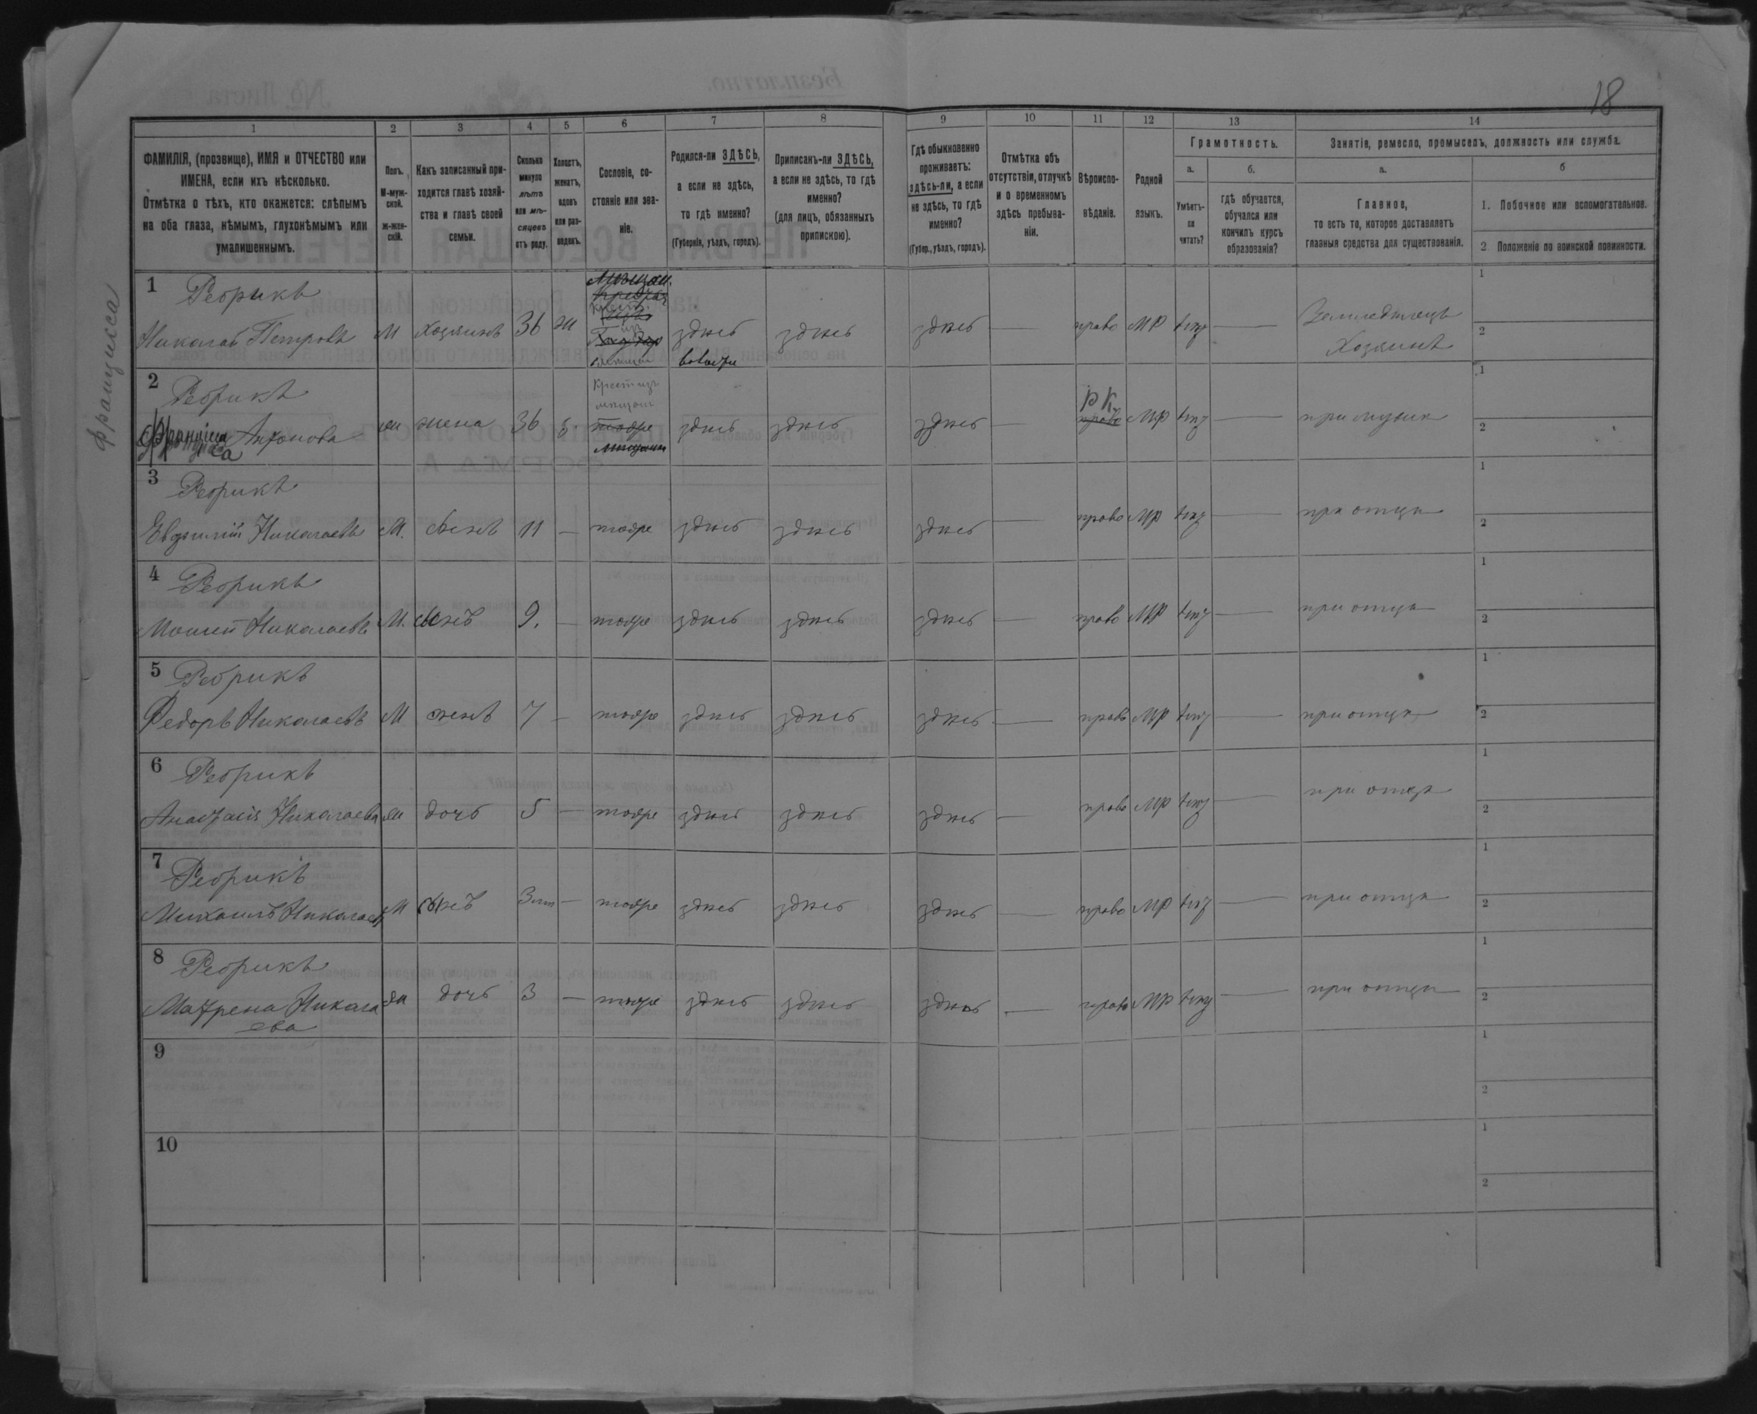 18
1 2 3 4 5 6 7 8 9 10 11 12 13 14
ФАМИЛІЯ, (прозвище), ИМЯ и ОТЧЕСТВО или
ИМЕНА, если ихъ нѣсколько.
Отмѣтка о тѣхъ, кто окажется: слѣпымъ
на оба глаза, нѣмымъ, глухонѣмымъ или
умалишеннымъ.
Полъ.
М-муж-
ской.
Ж-жен-
скій.
Какъ записанный при-
ходится главѣ хозяй-
ства и главѣ своей
семьи.
Сколько
минуло
лѣтъ
или мѣ-
сяцевъ
отъ роду.
Холостъ,
женатъ,
вдовъ
или раз-
веденъ.
Сословіе, со-
стояніе или зва-
ніе.
Родился-ли ЗДѢСЬ,
а если не здѣсь,
то гдѣ именно?
(Губернія, уѣздъ, городъ).
Приписанъ-ли ЗДѢСЬ,
а если не здѣсь, то гдѣ
именно?
(для лицъ, обязанныхъ
припискою).
Гдѣ обыкновенно
проживаетъ:
здѣсь-ли, а если
не здѣсь, то гдѣ
именно?
(Губер., уѣздъ, городъ).
Отмѣтка объ
отсутствіи, отлучкѣ
и о временномъ
здѣсь пребыва-
ніи.
Вѣроиспо-
вѣданіе.
Родной
языкъ.
Грамотность.
а.
Умѣетъ-
ли
читать?
б.
гдѣ обучается,
обучался или
кончилъ курсъ
образованія?
Занятіе, ремесло, промыселъ, должность или служба.
а.
Главное,
то есть то, которое доставляетъ
главныя средства для существованія.
б
1. Побочное или вспомогательное.
2 Положеніе по воинской повинности.
Франциска
1 Ребрикъ
Николай Петровъ М хозяинъ 36 ж здѣсь здѣсь здѣсь — право МР нѣтъ — Земледѣлецъ
Хозяинъ
1
2
2 Ребрикъ
Антонова ж жена 36 здѣсь здѣсь здѣсь — РК МР нѣтъ — при мужѣ
1
2
3 Ребрикъ
Евфимій Николаевъ М. сынъ 11 — тоже здѣсь здѣсь здѣсь — право МР нѣтъ — при отцѣ
1
2
4 Ребрикъ
Моисей Николаевъ М. сынъ 9. — тоже здѣсь здѣсь здѣсь — право МР нѣтъ — при отцѣ
1
2
5 Ребрикъ
Федоръ Николаевъ М сынъ 7 — тоже здѣсь здѣсь здѣсь — право МР нѣтъ — при отцѣ
1
2
6 Ребрикъ
Анастасія Николаева ж дочь 5 — тоже здѣсь здѣсь здѣсь — право МР нѣтъ — при отцѣ
1
2
7 Ребрикъ
Михаилъ Николаевъ М сынъ — тоже здѣсь здѣсь здѣсь — право МР нѣтъ — при отцѣ
1
2
8 Ребрикъ
Матрена Никола ж дочь 3 — тоже здѣсь здѣсь здѣсь — право МР нѣтъ — при отцѣ
ева
1
2
9
1
2
10
1
2